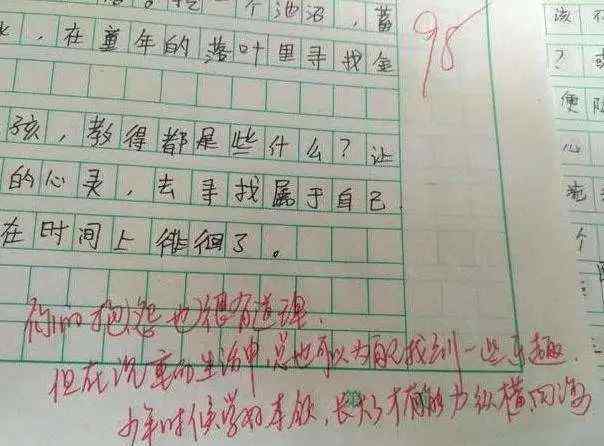 一个池沼，蓄
，在童年的落叶里寻找金
98
孩，教得都是些什么？让
的心灵，去寻找属于自己
在时间上徘徊了。
你的抱怨也很有道理，
但在沉重的生活中，总也可以为自己找到一些乐趣，
少年时候学好本领，长大了才有能力纵横四海
该
？
便
心
个